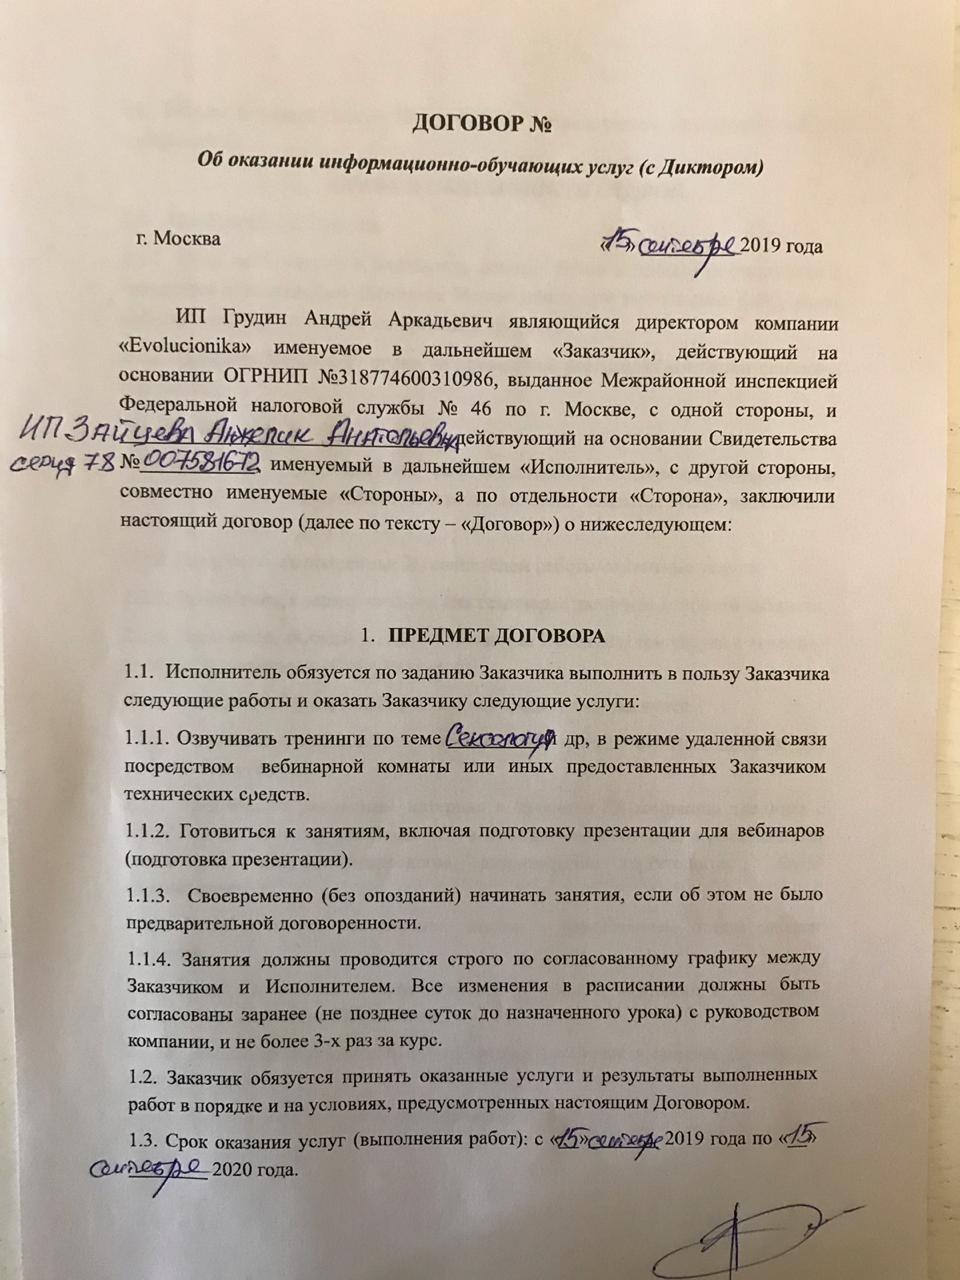 ДОГОВОР №
Об оказании информационно-обучающих услуг (с Диктором)
г. Москва «15» сентебре 2019 года
ИП Грудин Андрей Аркадьевич являющийся директором компании
«Evolucionika» именуемое в дальнейшем «Заказчик», действующий на
основании ОГРНИП №318774600310986, выданное Межрайонной инспекцией
Федеральной налоговой службы № 46 по г. Москве, с одной стороны, и
ИП Зайцева Анжелик Анатольевна действующий на основании Свидетельства
серия 78 №007581672, именуемый в дальнейшем «Исполнитель», с другой стороны,
совместно именуемые «Стороны», а по отдельности «Сторона», заключили
настоящий договор (далее по тексту – «Договор») о нижеследующем:
1. ПРЕДМЕТ ДОГОВОРА
1.1. Исполнитель обязуется по заданию Заказчика выполнить в пользу Заказчика
следующие работы и оказать Заказчику следующие услуги:
1.1.1. Озвучивать тренинги по теме Сексология др, в режиме удаленной связи
посредством вебинарной комнаты или иных предоставленных Заказчиком
технических средств.
1.1.2. Готовиться к занятиям, включая подготовку презентации для вебинаров
(подготовка презентации).
1.1.3. Своевременно (без опозданий) начинать занятия, если об этом не было
предварительной договоренности.
1.1.4. Занятия должны проводится строго по согласованному графику между
Заказчиком и Исполнителем. Все изменения в расписании должны быть
согласованы заранее (не позднее суток до назначенного урока) с руководством
компании, и не более 3-х раз за курс.
1.2. Заказчик обязуется принять оказанные услуги и результаты выполненных
работ в порядке и на условиях, предусмотренных настоящим Договором.
1.3. Срок оказания услуг (выполнения работ): с «15» сентебре 2019 года по «15»
сентебре 2020 года.